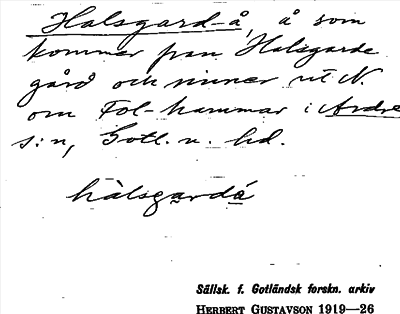 Halsgard-å, å som
kommer från Halsgarde
gård och rinner ut N.
om Fol-hammar i Ardre
s:n, Gotl. n. hd.
hàlsgardá
Sällsk. f. Gotländsk forskn. arkiv
HERBERT GUSTAVSON 1919—26